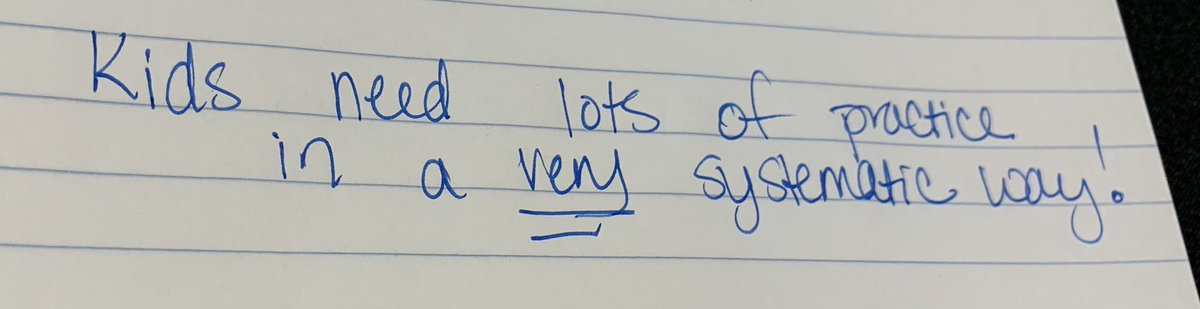 Kids need lots of practice
in a very systematic way!